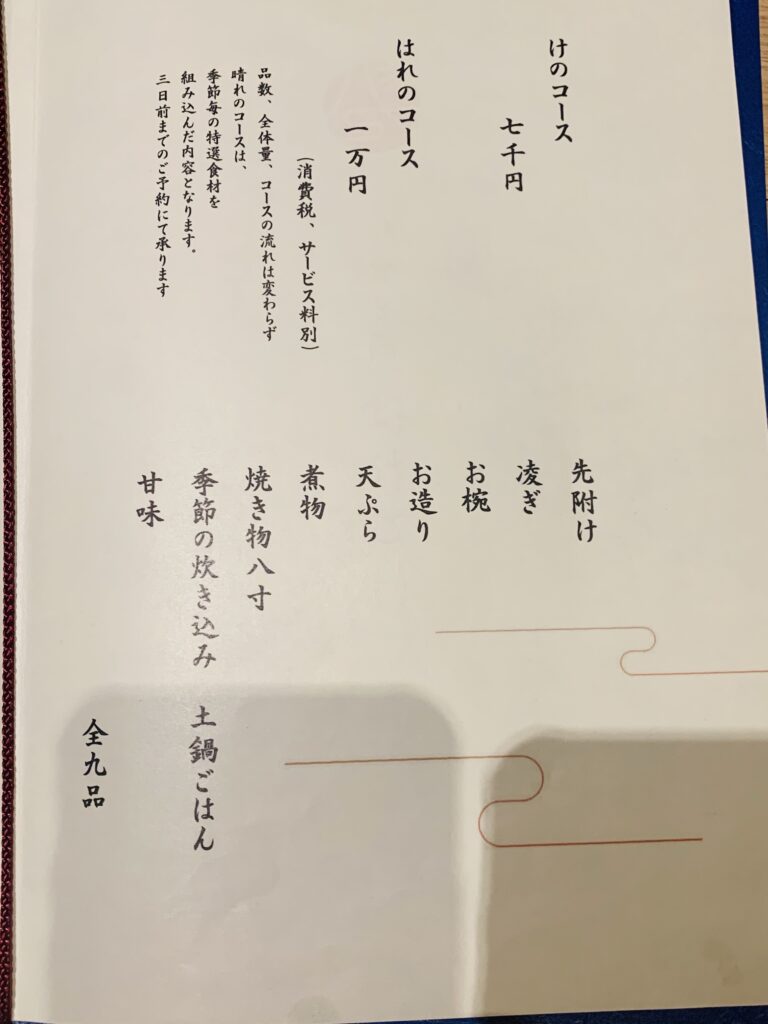 けのコース
七千円
はれのコース
一万円
(消費税、サービス料別)
品数、全体量、コースの流れは変わらず
晴れのコースは、
季節毎の特選食材を
組み込んだ内容となります。
三日前までのご予約にて承ります
先附け
凌ぎ
お椀
お造り
天ぷら
煮物
焼き物八寸
季節の炊き込み　土鍋ごはん
甘味
全九品